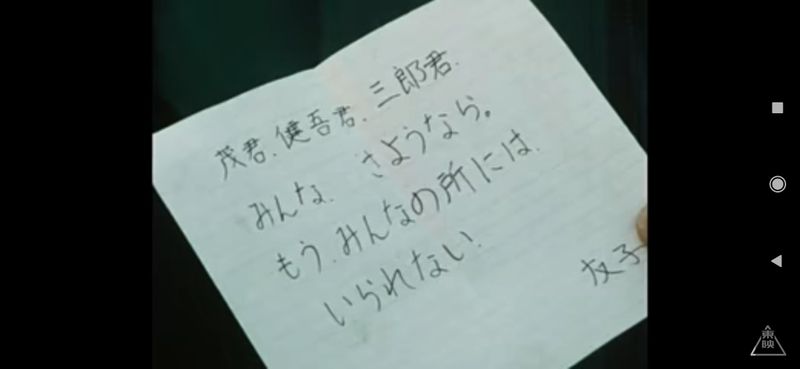 茂君、健吾君、三郎君、
みんな、さようなら。
もう、みんなの所には、
いられない、
友子
東映